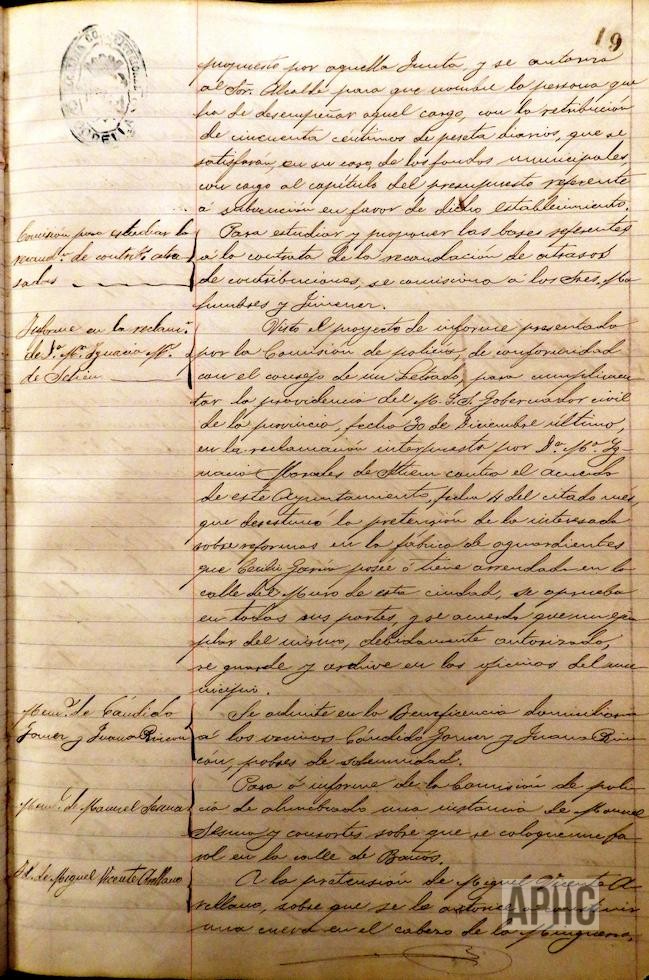 19
propuesto por aquella Junta, y se autoriza
al Sor. Alcalde para que nombre la persona que
ha de desempeñar aquel cargo, con la retribución
de cincuenta céntimos de peseta diarios, que se
satisfarán, en su caso, de los fondos municipales
con cargo al capítulo del presupuesto referente
á subvención en favor de dicho establecimiento.
Comisión para estudiar la
recaudn. de contribs. atra
sadas
Para estudiar y proponer las bases referentes
á la contrata de la recaudación de atrasos
de contribuciones, se comisiona á los Sres. Ma
humbres y Jimenez.
Informe en la reclamn.
de Da. Ma. Ignacia M.
de
Visto el proyecto de informe presentado
por la Comisión de policía, de conformidad
con el consejo de un Letrado, para cumplimen
tar la providencia del M. I. S. Gobernador civil
de la provincia, fecha 30 de Diciembre último,
en la reclamación interpuesta por Da. Ma. Yg-
nacia Morales de contra el acuerdo
de este Ayuntamiento, fecha 4 del citado més,
que desestimó la pretensión de la interesada
sobre reformas en la fábrica de aguardientes
que Cecilio García posee ó tiene arrendada en la
calle del Muro de esta ciudad, se aprueba
en todas sus partes, y se acuerda que un ejem
plar del mismo, debidamente autorizado,
se guarde y archive en las oficinas del mu
nicipio.
Mem. de Cándido
Jomer y Juana Rincón
Se admite en la Beneficencia domiciliaria
á los vecinos Cándido Jomer y Juana Rin
cón, pobres de solemnidad.
Mem. de Manuel Sesma
Pasa á informe de la Comisión de poli-
cía de alumbrado una instancia de Manuel
Sesma y consortes sobre que se coloque un fa
rol en la calle de Baños.
Id. de Miguel Vicente Arellano
A la pretensión de Miguel Vicente A-
rellano, sobre que se le autorice
una cueva en el cabezo de la
APHC